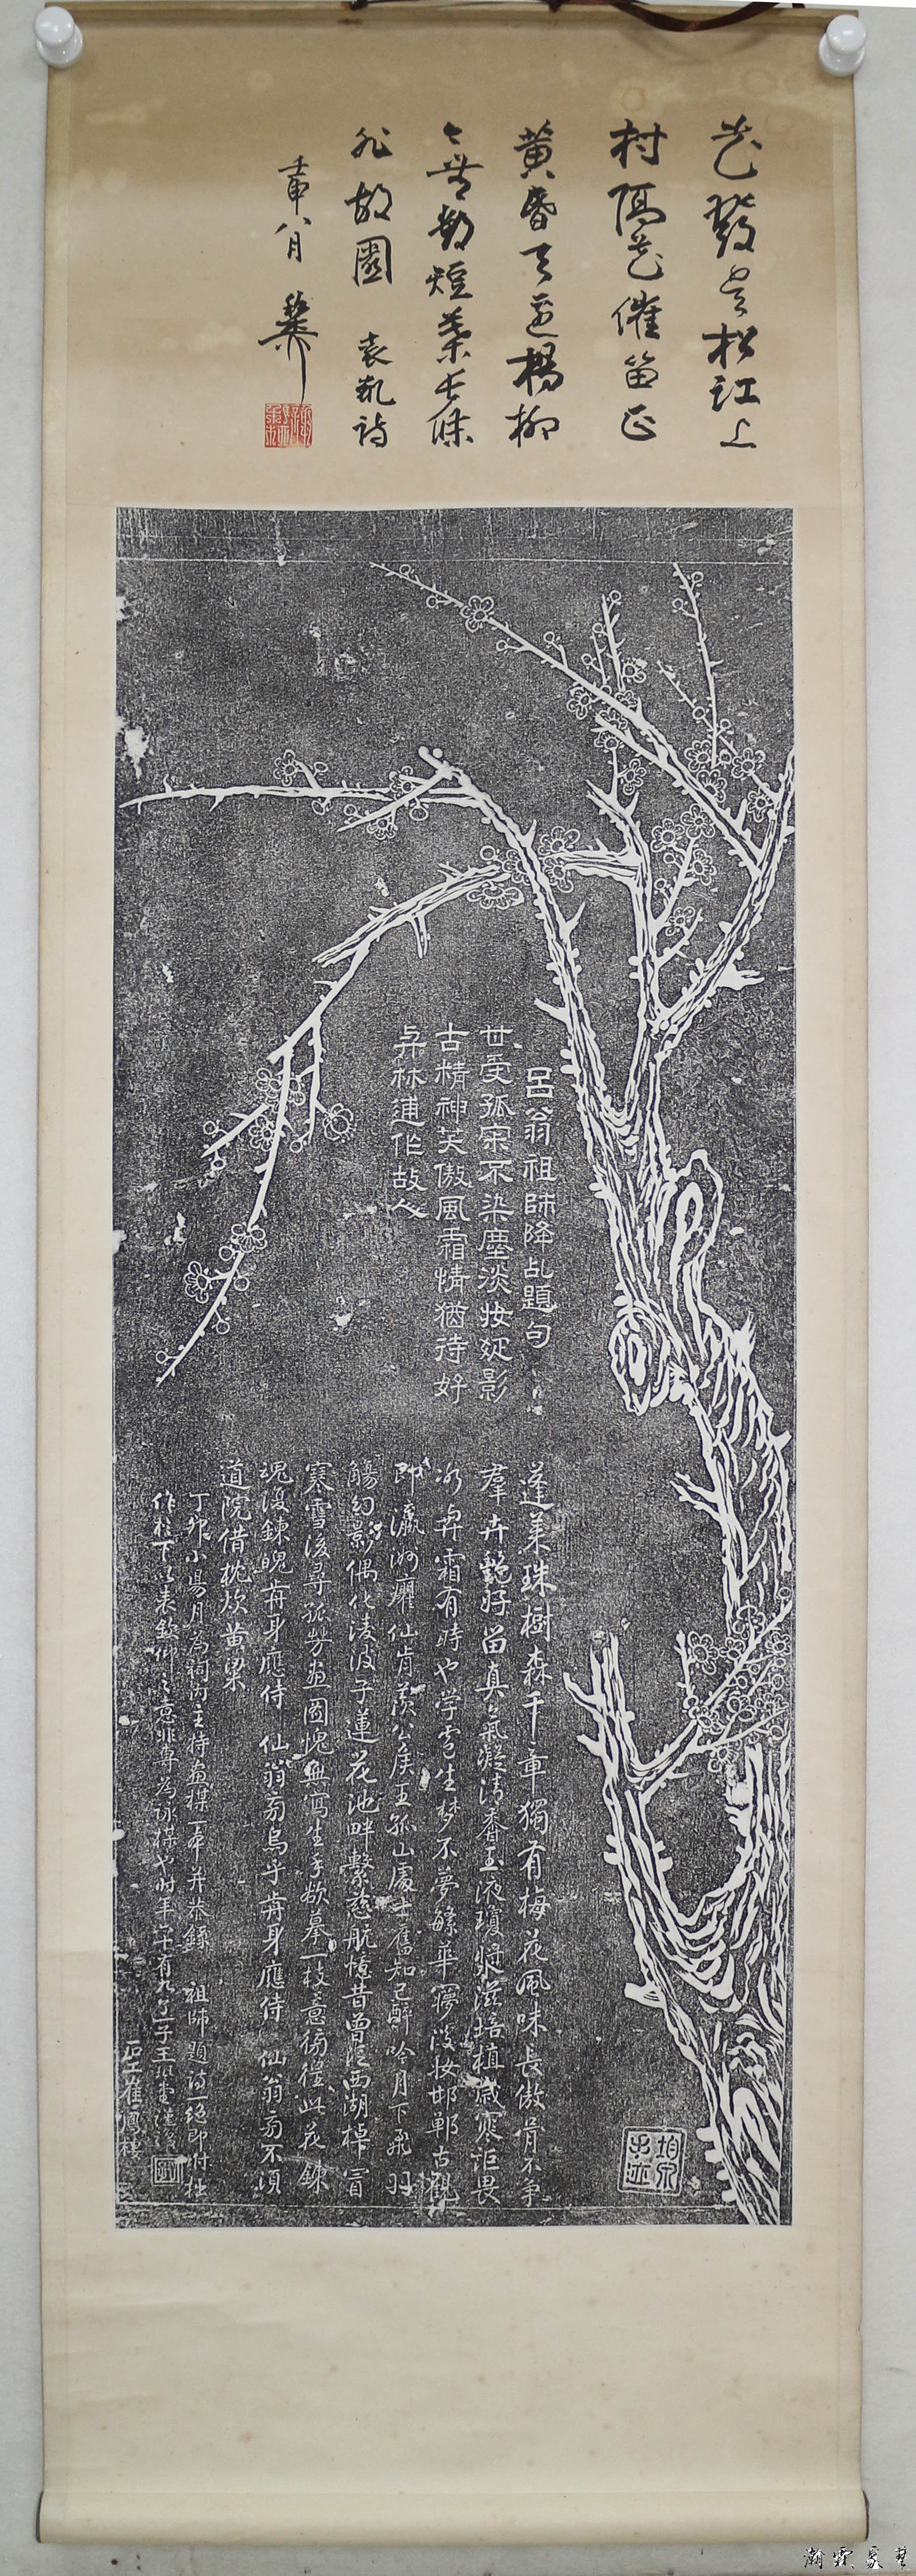 花發吳松江上
村隔花催笛正
黃昏天邊楊柳
無數短葉長條
非故園 袁凱詩
壬申八月
呂翁祖師降乩題句
世受孤寒不染塵淡妝疎影
古精神笑傲風霜情猶待好
與林逋作故人
蓬萊珠樹森千章獨有梅花風味長傲骨不爭
羣卉艷好留真氣凝清香玉液瓊漿滋培植歲寒詎畏
冰與霜有時也学雪生梦不夢繁華夢淡妝邯鄲古觀
即瀛洲癯仙肯羨公侯王孤山處士舊知己醉吟月下飛羽
觴幻影偶化凌波子蓮花池畔繫慈航憶昔曾泛西湖棹冒
寒雪後尋孤芳畫圖愧無寫生手欲摹一枝意徬徨此花鍊
魂復鍊魄前身應侍 仙翁旁烏乎前身應侍 仙翁旁不須
道院借枕炊黃粱
丁卯小陽月為祠內主持畫楳一本并恭錄 祖師題詩一絕即付拙
作於下以表欽仰之意非專為詠楳也时年五十有九
石工崔鳳樓